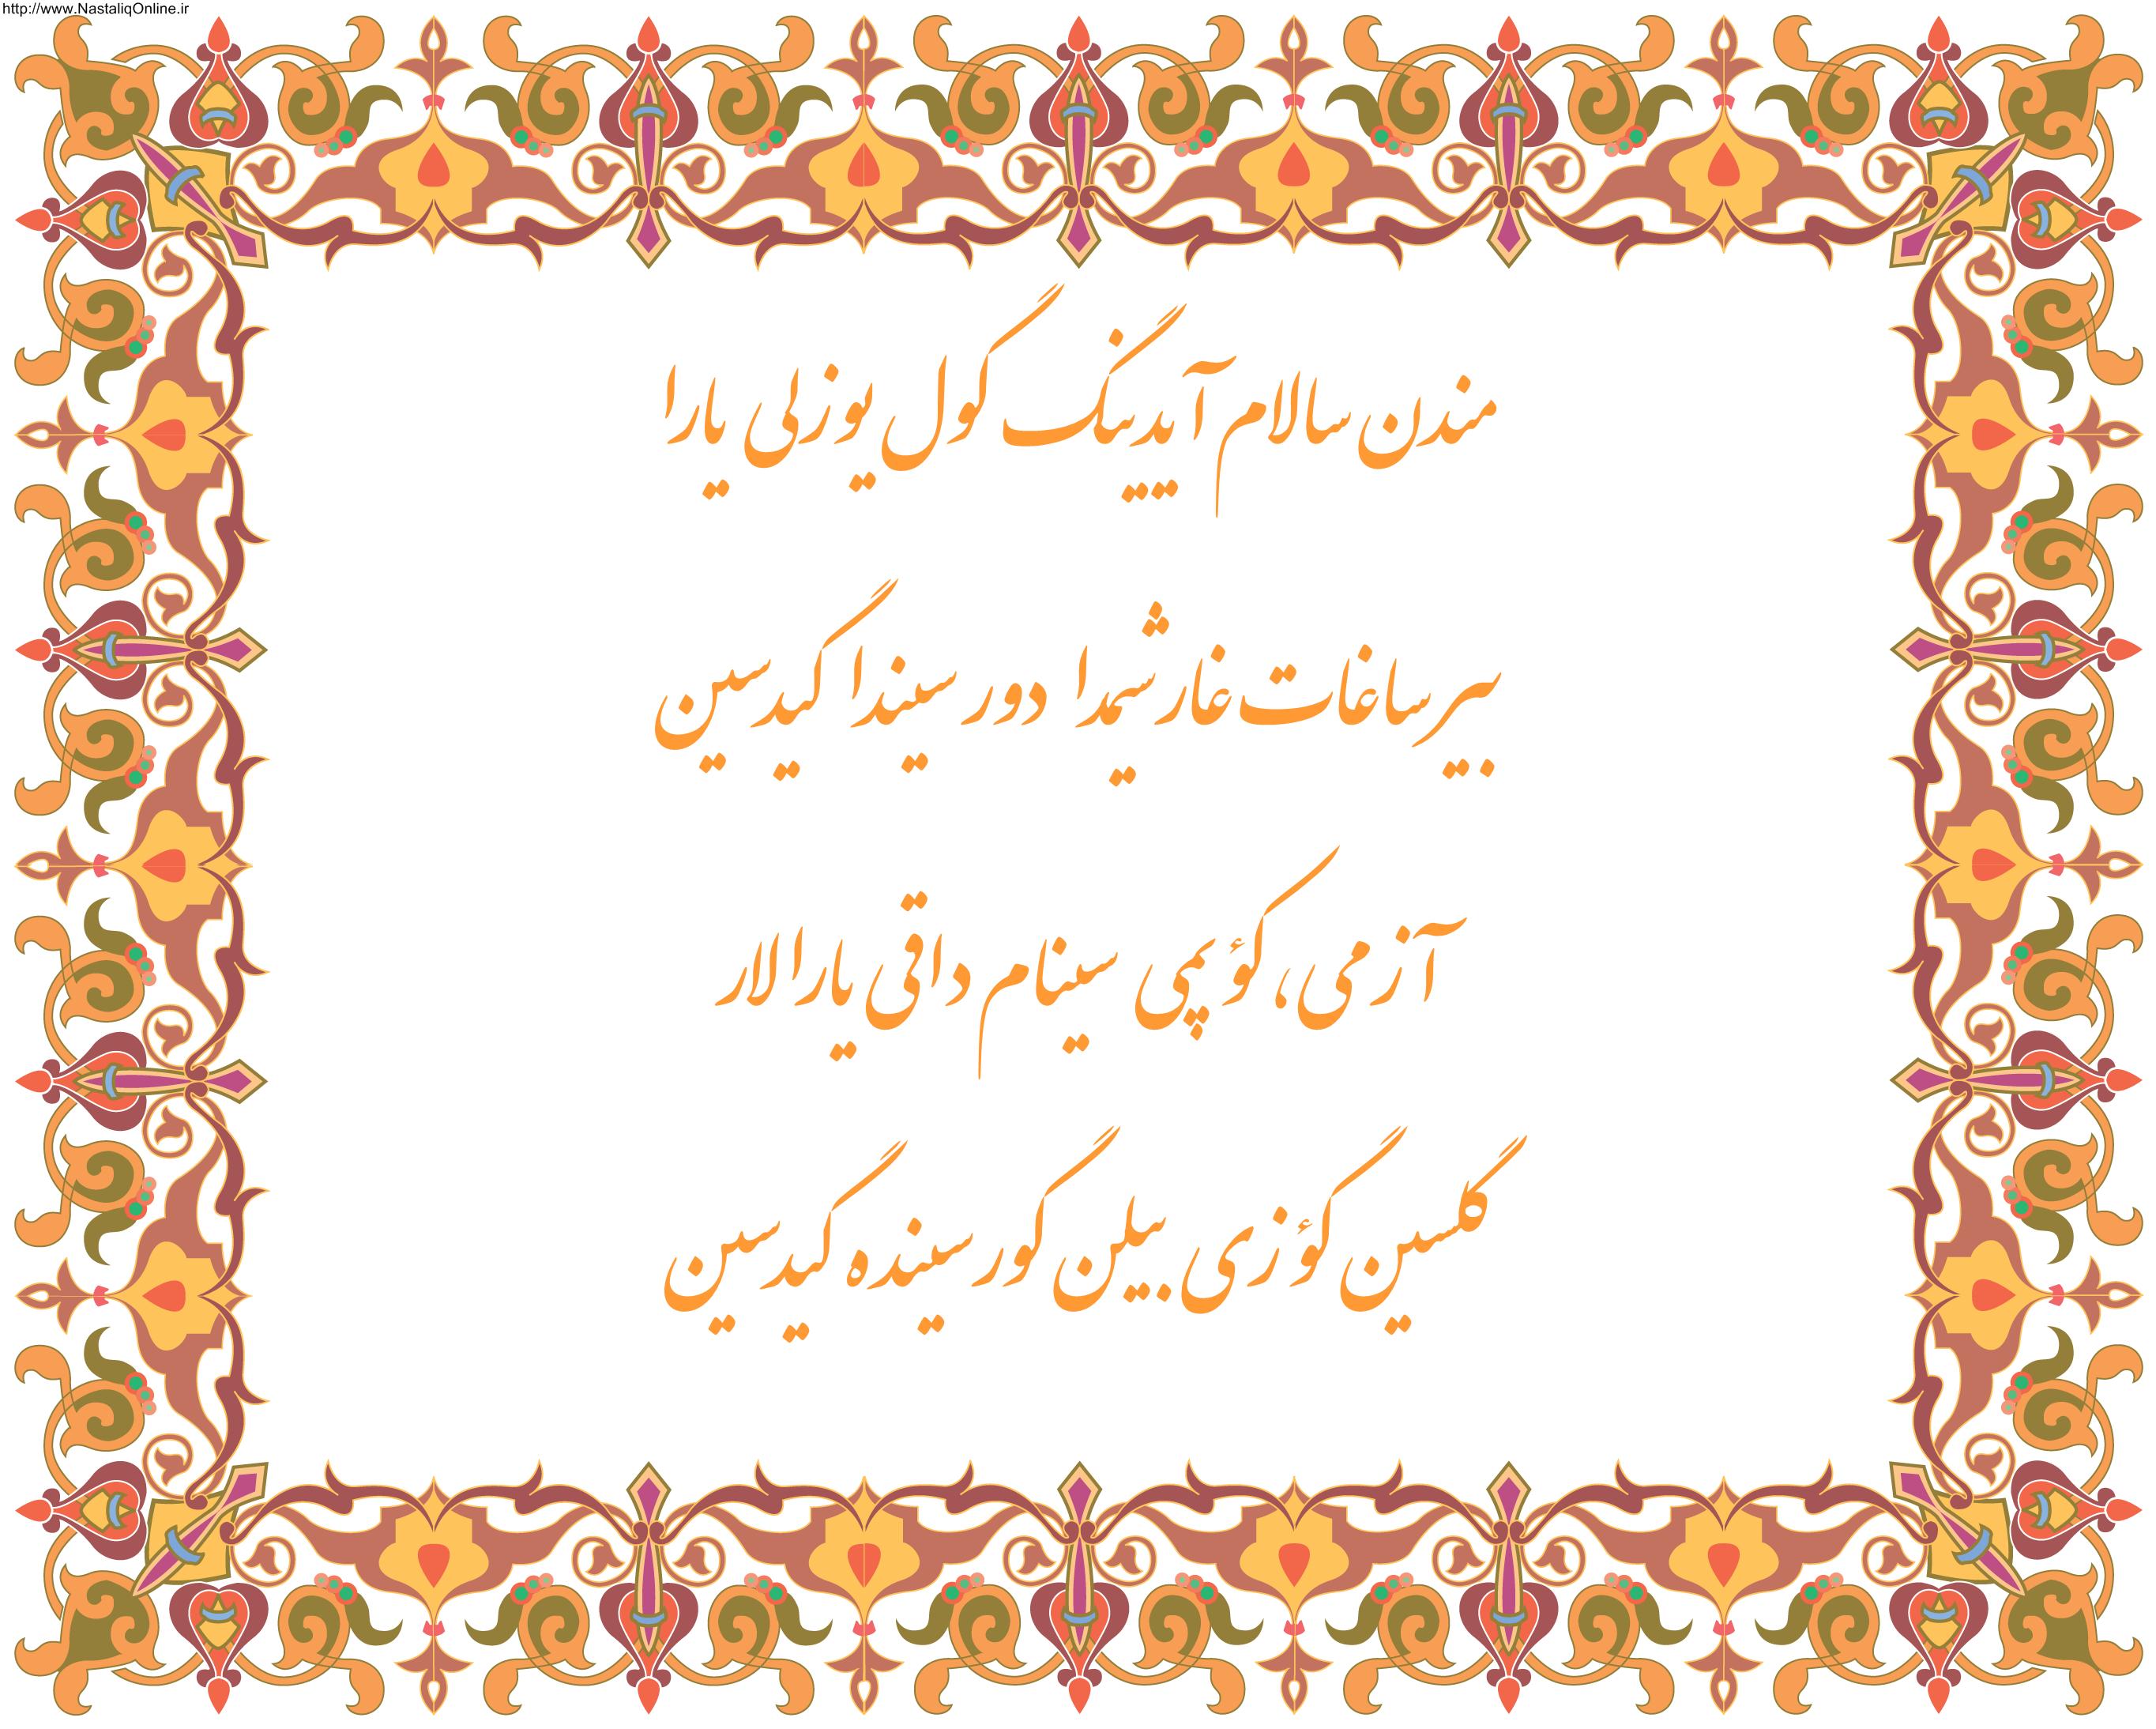 http://www.NastaliqOnline.ir
مندن سالام آیدینگ گول یوزلی یارا
بیر ساغات غارشیمدا دور سیندا گیرسین
آزمی، کؤپمی سینام داقی یارالار
گلسین گؤزی بیلن گور سینده گیرسین